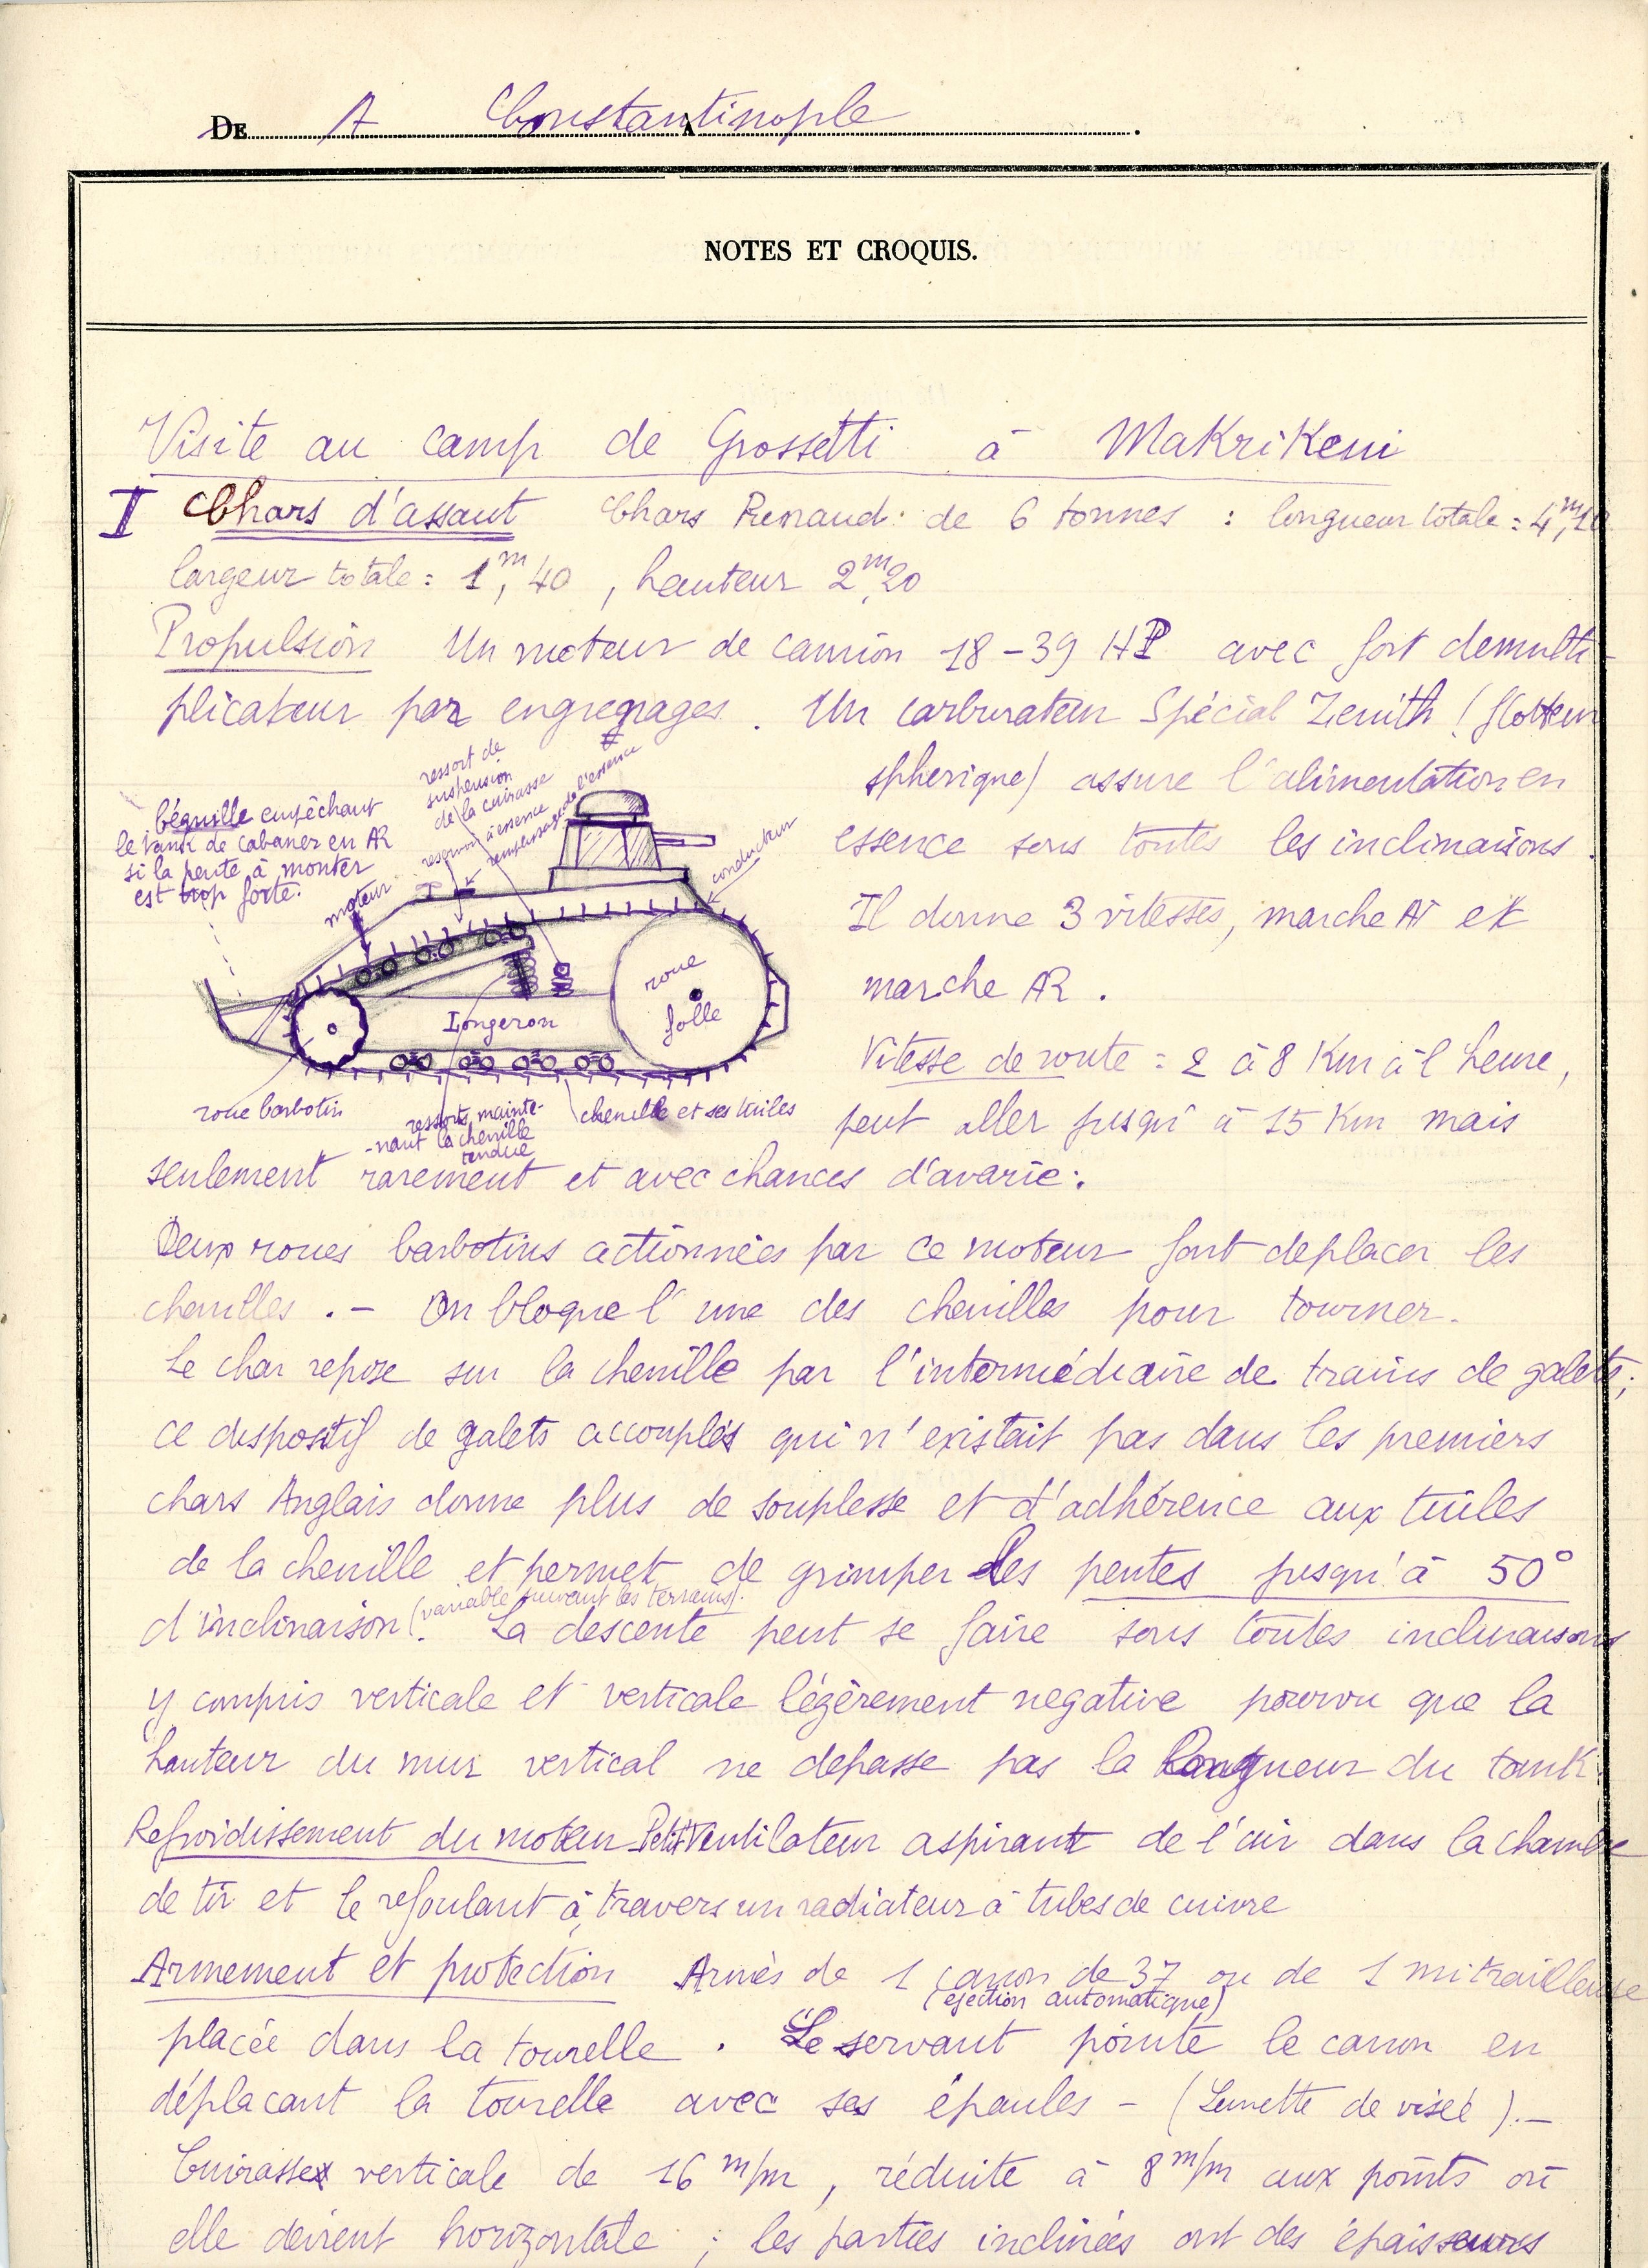 DE A Constantinople A
NOTES ET CROQUIS.
Visite au camp de Grossetti à MaKriKeui
I Chars d'assaut Chars Renaud de 6 tonnes : longueur totale = 4m,10
largeur totale = 1m,40 , hauteur 2m,20
Propulsion Un moteur de camion 18-39 HP avec fort demulti-
plicateur par engregrages. Un carburateur Spécial Zenith (flotteur
spherique) assure l'alimentation en
essence sous toutes les inclinaisons.
Il donne 3 vitesses, marche AV et
marche AR.
Vitesse de route = 2 à 8 Km à l'heure,
peut aller jusqu'à 15 Km mais
béquille empêchant
le tank de cabaner en AR
si la pente à monter
est trop forte.
moteur
ressort de
suspension
de la cuirasse
reservoir à essence
remplissage de l'essence
conducteur
roue
folle
Longeron
roue barbotin
ressorts mainte-
-nant la chenille
tendue
chenille et ses tuiles
seulement rarement et avec chances d'avarie.
Deux roues barbotins actionnées par ce moteur font deplacer les
chenilles. - On bloque l'une des chenilles pour tourner.
Le char repose sur la chenille par l'intermédiaire de trains de galets;
ce dispositif de galets accouplés qui n'existait pas dans les premiers
chars Anglais donne plus de souplesse et d'adhérence aux tuiles
de la chenille et permet de grimper des pentes jusqu'à 50°
d'inclinaison (variable suivant les terrains). La descente peut se faire sous toutes inclinaisons
y compris verticale et verticale légèrement negative pourvu que la
hauteur du mur vertical ne depasse pas la longueur du tank.
Refroidissement du moteur Petit Ventilateur aspirant de l'air dans la chambre
de tir et le refoulant à travers un radiateur à tubes de cuivre
Armement et protection Armés de 1 canon de 37 ou de 1 mitrailleuse
(ejection automatique)
placée dans la tourelle. Le servant pointe le canon en
déplacant la tourelle avec ses épaules - (Lunette de viseé).-
Cuirasse verticale de 16 m/m, réduite à 8 m/m aux points où
elle devient horizontale ; les parties inclinées ont des épaisseurs